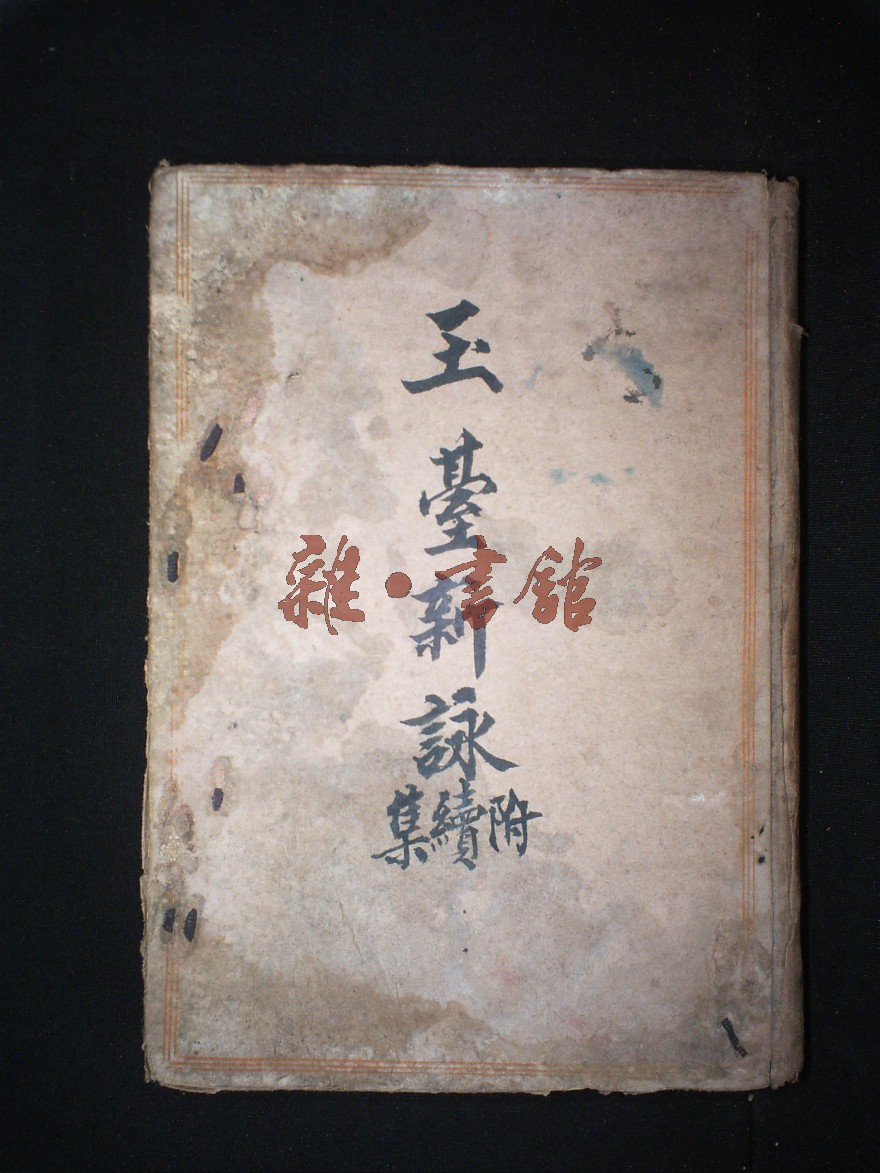 玉臺新詠
附續集
雜·書舘